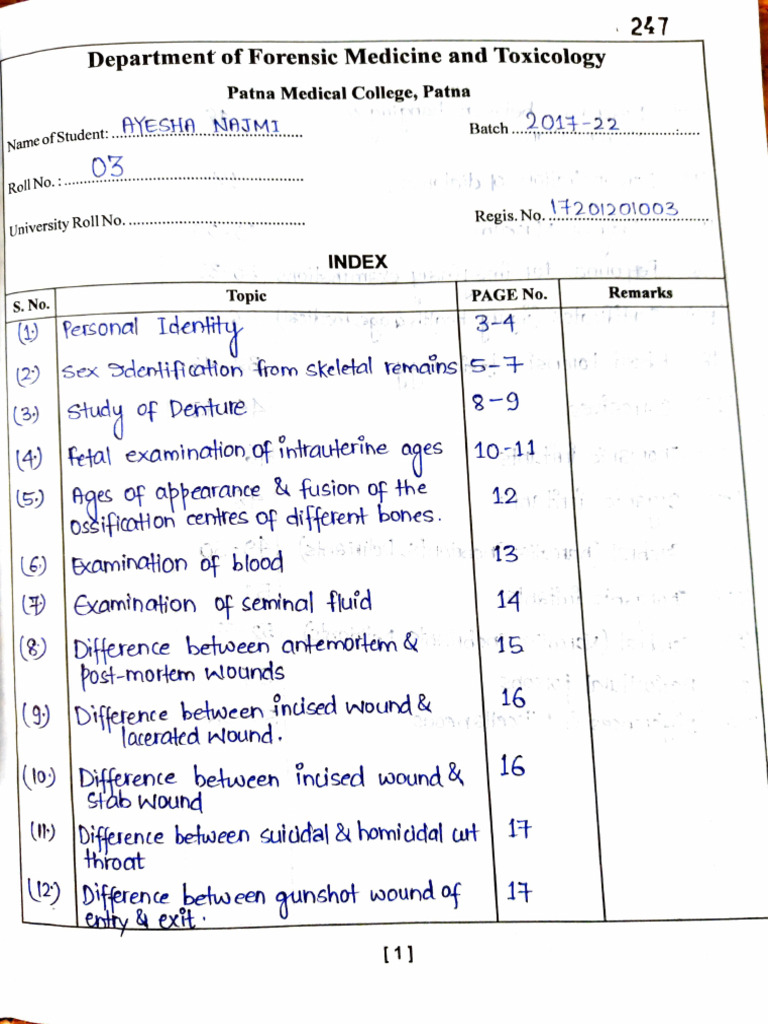 247
Department of Forensic Medicine and Toxicology
Patna Medical College, Patna
Name of Student: AYESHA NAJMI Batch 2017-22
Roll No. : 03
University Roll No. Regis. No. 17201201003
INDEX
S. No. Topic PAGE No. Remarks
(1.) Personal Identity 3-4
(2.) Sex Identification from skeletal remains 5-7
(3.) Study of Denture 8-9
(4.) Fetal examination of intrauterine ages 10-11
(5.) Ages of appearance & fusion of the 12
ossification centres of different bones.
(6.) Examination of blood 13
(7.) Examination of seminal fluid 14
(8.) Difference between antemortem & 15
post-mortem wounds
(9.) Difference between incised wound & 16
lacerated wound.
(10.) Difference between incised wound & 16
stab wound
(11.) Difference between suicidal & homicidal cut 17
throat
(12.) Difference between gunshot wound of 17
entry & exit.
[ 1 ]